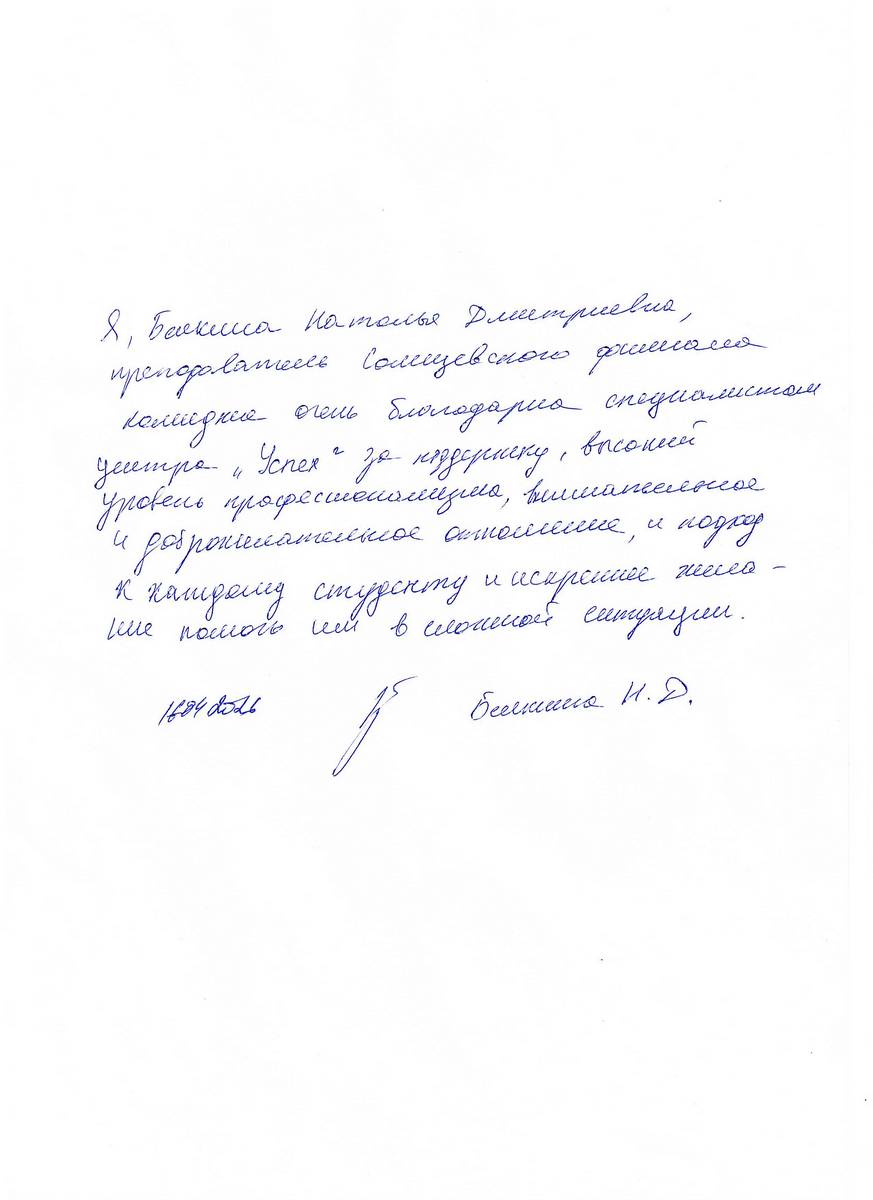 Я, Наталья Дмитриевна,
преподаватель филиала
колледжа очень благодарна специалистам
центра „Успех“ за поддержку, высокий
уровень профессионализма, внимательное
и доброжелательное отношение, и подход
к каждому студенту и искреннее жела-
ние помочь им в сложной ситуации.
Н. Д.